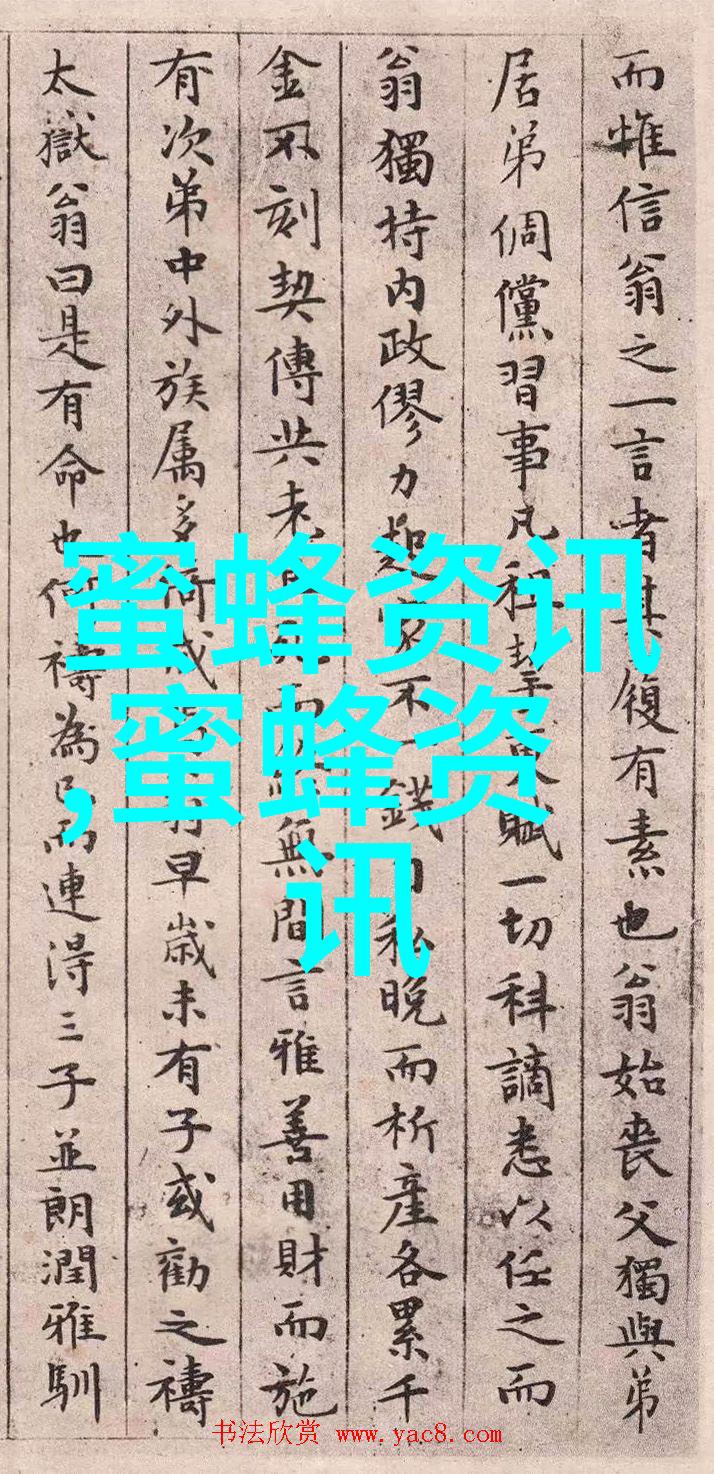 而惟信翁之一言者其履有素也翁始丧父獨與弟
居弟倜儻習事凡租賦一切科謫悉以任之而
翁獨持内政僇力起家不一錢自私晚而析産各累千
金不刻契傳共無間言雅善用財而施
有次弟中外族属多早歲未有子或勸之禱
太嶽翁曰是有命也何禱為已而連得三子並朗潤雅馴
蜜蜂资讯
,蜜蜂资
讯
书法欣赏 www.yac8.com